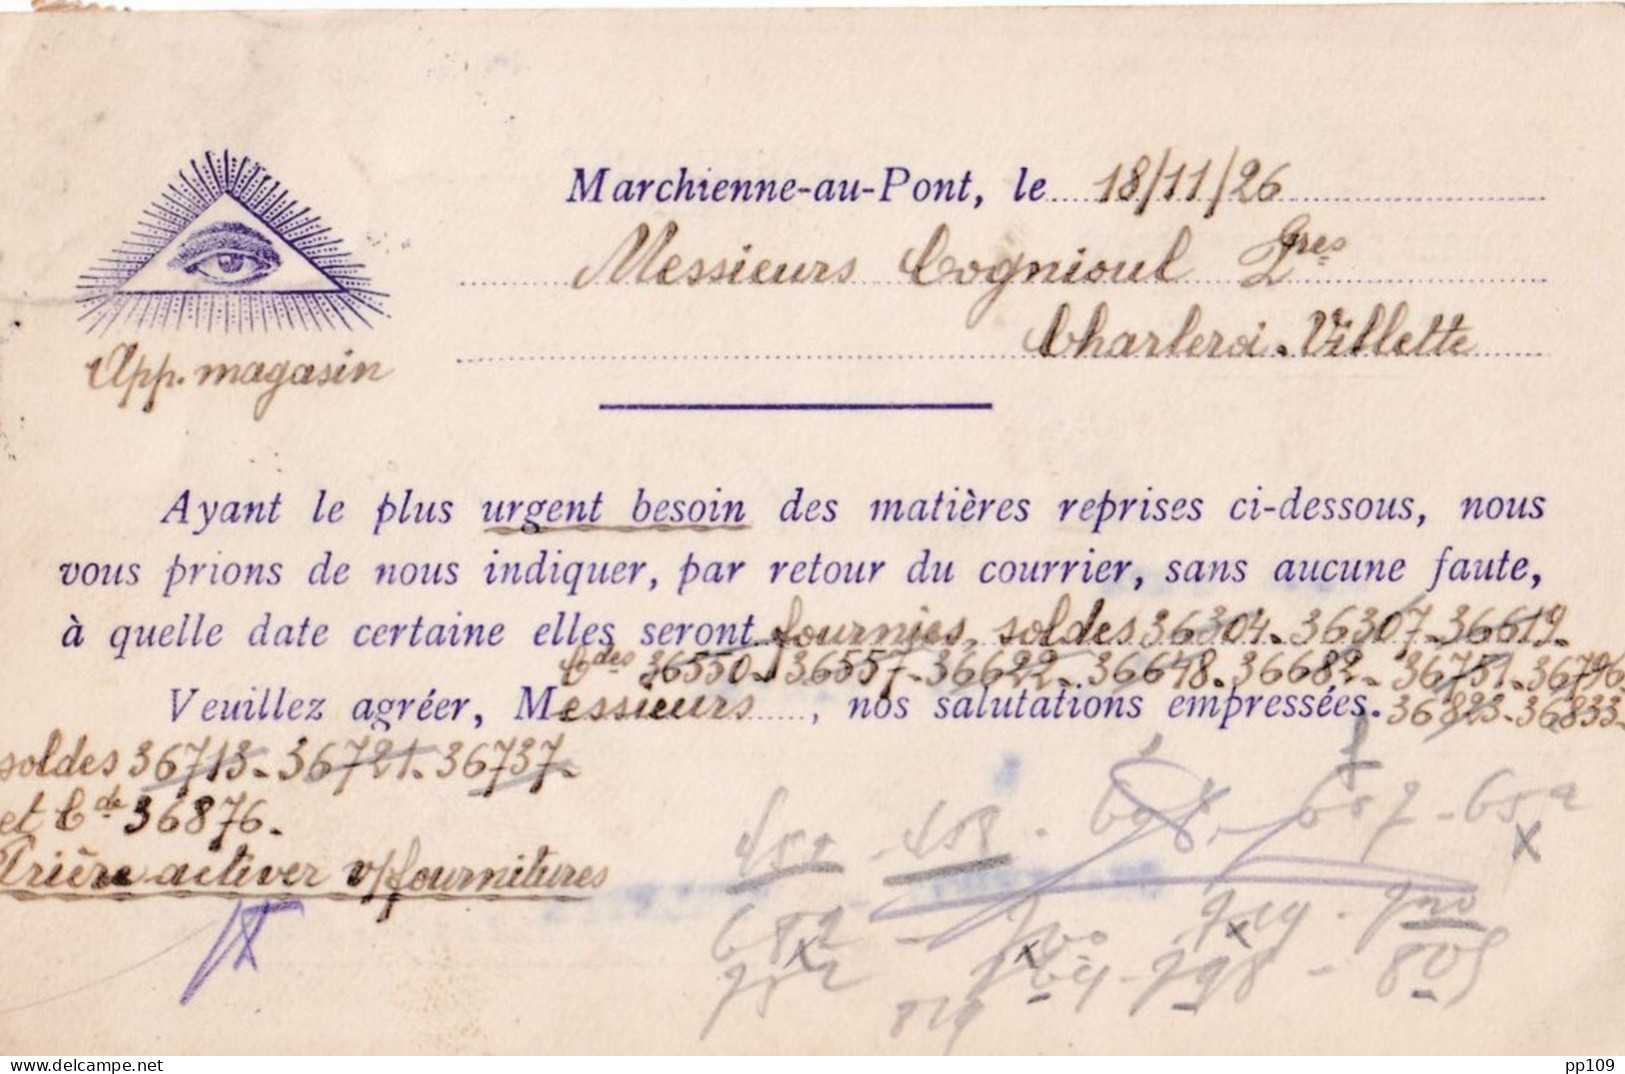 Marchienne-au-Pont, le 18/11/26
Messieurs Cognioul Fres
Charleroi-Villette
App. magasin
Ayant le plus urgent besoin des matières reprises ci-dessous, nous
vous prions de nous indiquer, par retour du courrier, sans aucune faute,
à quelle date certaine elles seront fournies, soldes 36304. 36307. 36619.
Cdes 36550. 36557. 36622. 36648. 36682. 36751. 36796
Veuillez agréer, Messieurs, nos salutations empressées. 36823. 36833.
soldes 36713. 36721. 36737.
et Cde 36876.
Prière activer v/fournitures
delcampe.net
pp109